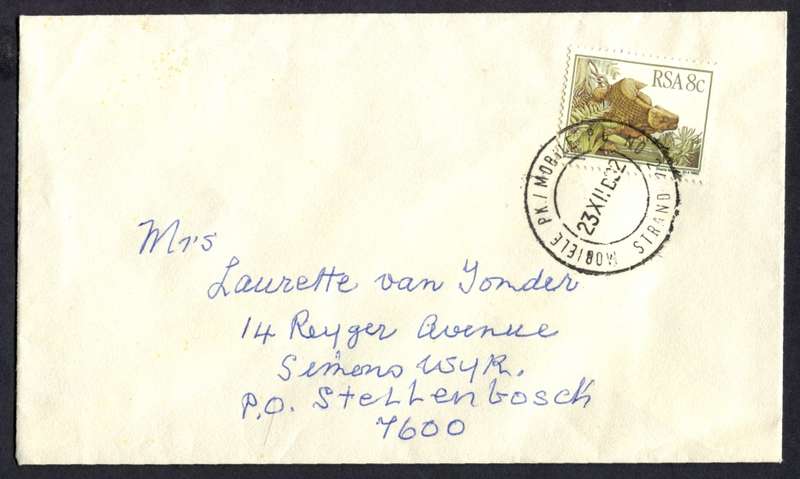 RSA 8c
MOBIELE PK./MOBIL
STRAND
23 XII 82
Mrs
Laurette van Tonder
14 Reyger Avenue
Simons Wyk.
P.O. Stellenbosch
7600